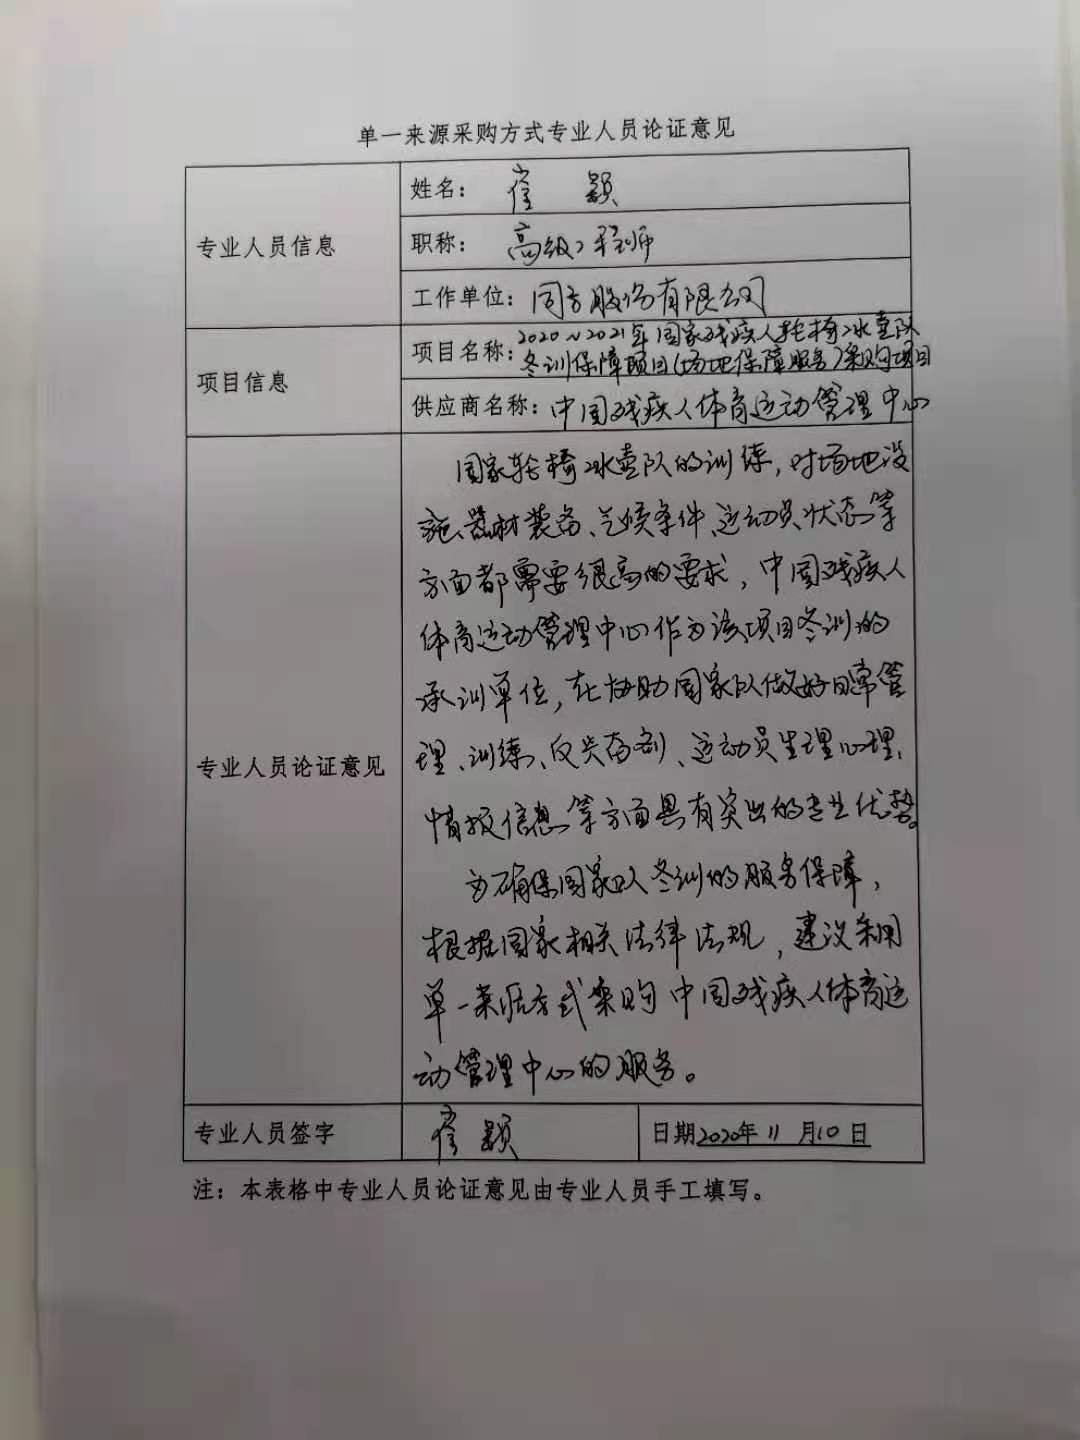 单一来源采购方式专业人员论证意见
专业人员信息
姓名：崔 颖
职称：高级工程师
工作单位：同方股份有限公司
项目信息
项目名称：2020~2021年国家残疾人轮椅冰壶队
冬训保障项目(场地保障服务)采购项目
供应商名称：中国残疾人体育运动管理中心
专业人员论证意见
国家轮椅冰壶队的训练，对场地设
施、器材装备、气候条件、运动员状态等
方面都需要很高的要求，中国残疾人
体育运动管理中心作为该项目冬训的
承训单位，在协助国家队做好日常管
理、训练、反兴奋剂、运动员生理心理、
情报信息等方面具有突出的专业优势。
为确保国家队冬训的服务保障，
根据国家相关法律法规，建议采用
单一来源方式采购中国残疾人体育运
动管理中心的服务。
专业人员签字
崔 颖
日期2020年11月10日
注：本表格中专业人员论证意见由专业人员手工填写。